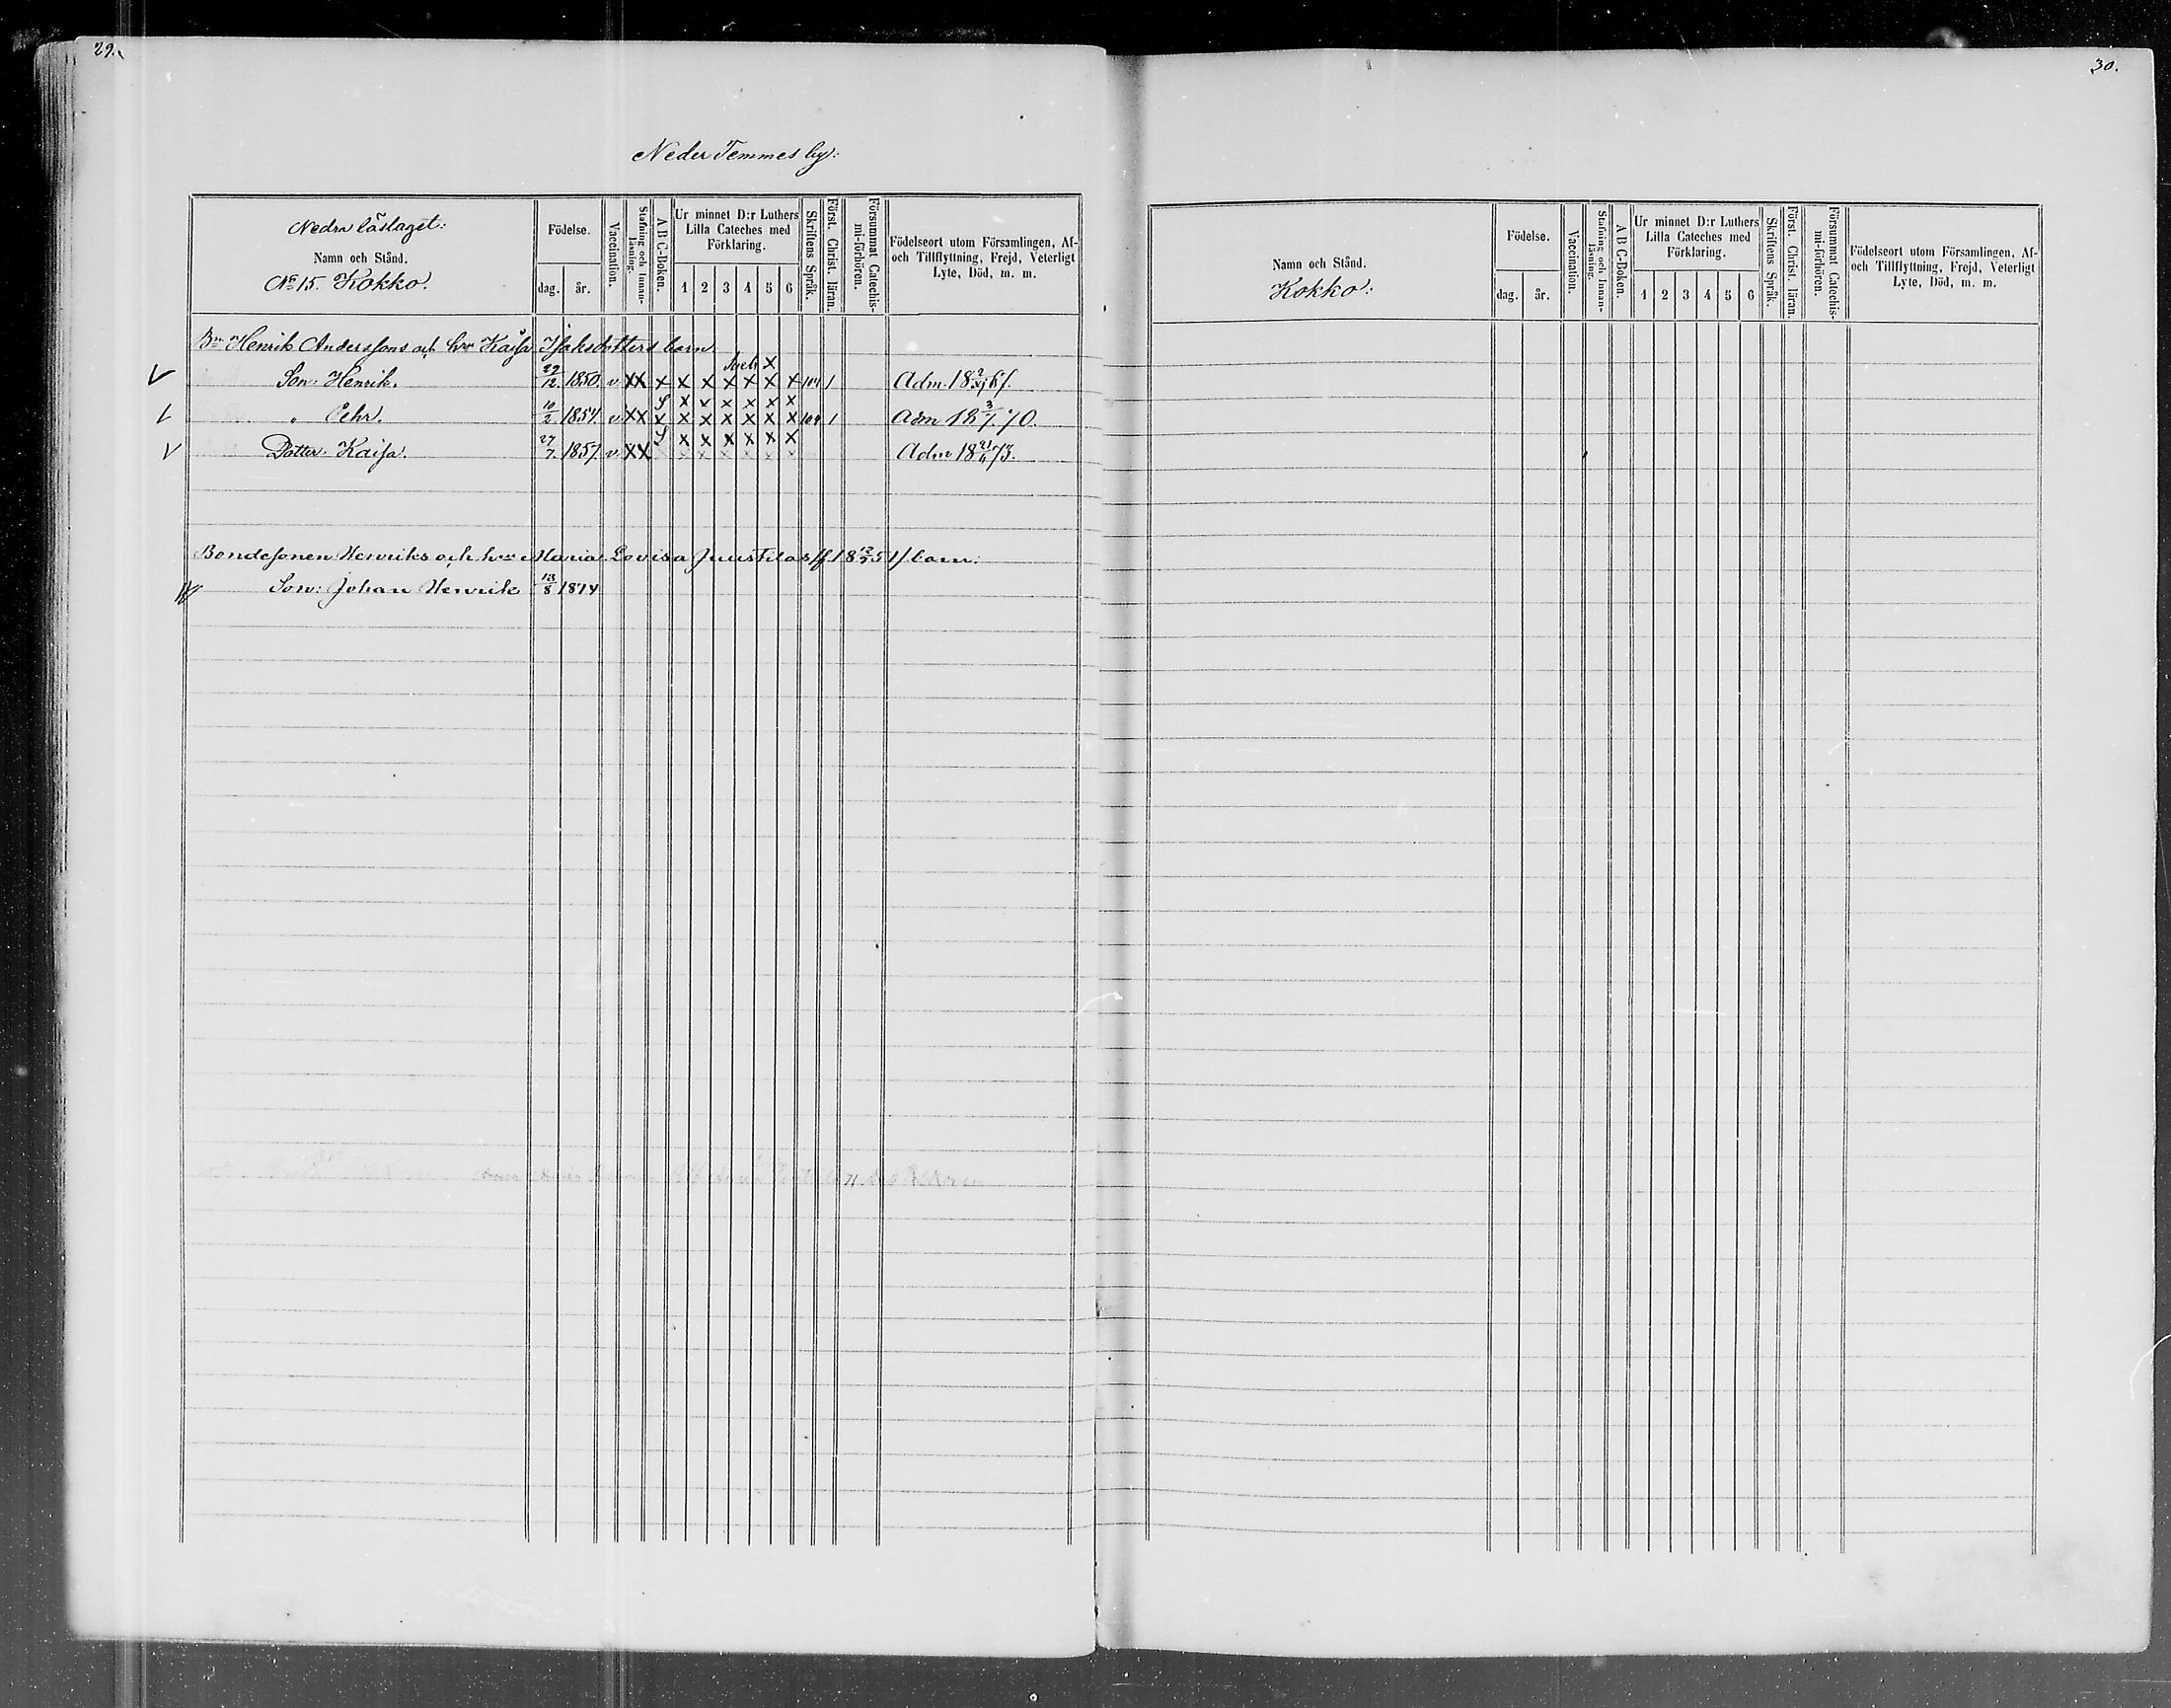 29.
Neder Temmes by:
Nedra läslaget:
Namn och Stånd.
No 15. Kokko.
Födelse.
dag. år.
Vaccination.
Stafning och Innan-läsning.
A B C-Boken.
Ur minnet D:r Luthers
Lilla Cateches med
Förklaring.
1 2 3 4 5 6
Skriftens Språk.
Först. Christ. läran.
Försummat Catechis-mi-förhören.
Födelseort utom Församlingen, Af-
och Tillflyttning, Frejd, Veterligt
Lyte, Död, m. m.
Bn Henrik Anderssons och hru Kaisa Isaksdotters barn
X
Son: Henrik. 22/12. 1850. v XX X X X X X X X 1 Adm.
S X X X X X X
" Pehr. 10/2 1854. v XX X X X X X X X 1 Adm 18 3/7. 70.
S X X X X X X
Dotter. Kaisa. 27/7. 1857. v XX X X X X X X Adm 18 73.
Bondesonen Henriks och hru Maria Lovisa barn:
Son: Johan Henrik 13/8 1874
30.
Namn och Stånd.
Kokko:
Födelse.
dag. år.
Vaccination.
Stafning och Innan-läsning.
A B C-Boken.
Ur minnet D:r Luthers
Lilla Cateches med
Förklaring.
1 2 3 4 5 6
Skriftens Språk.
Först. Christ. läran.
Försummat Catechis-mi-förhören.
Födelseort utom Församlingen, Af-
och Tillflyttning, Frejd, Veterligt
Lyte, Död, m. m.